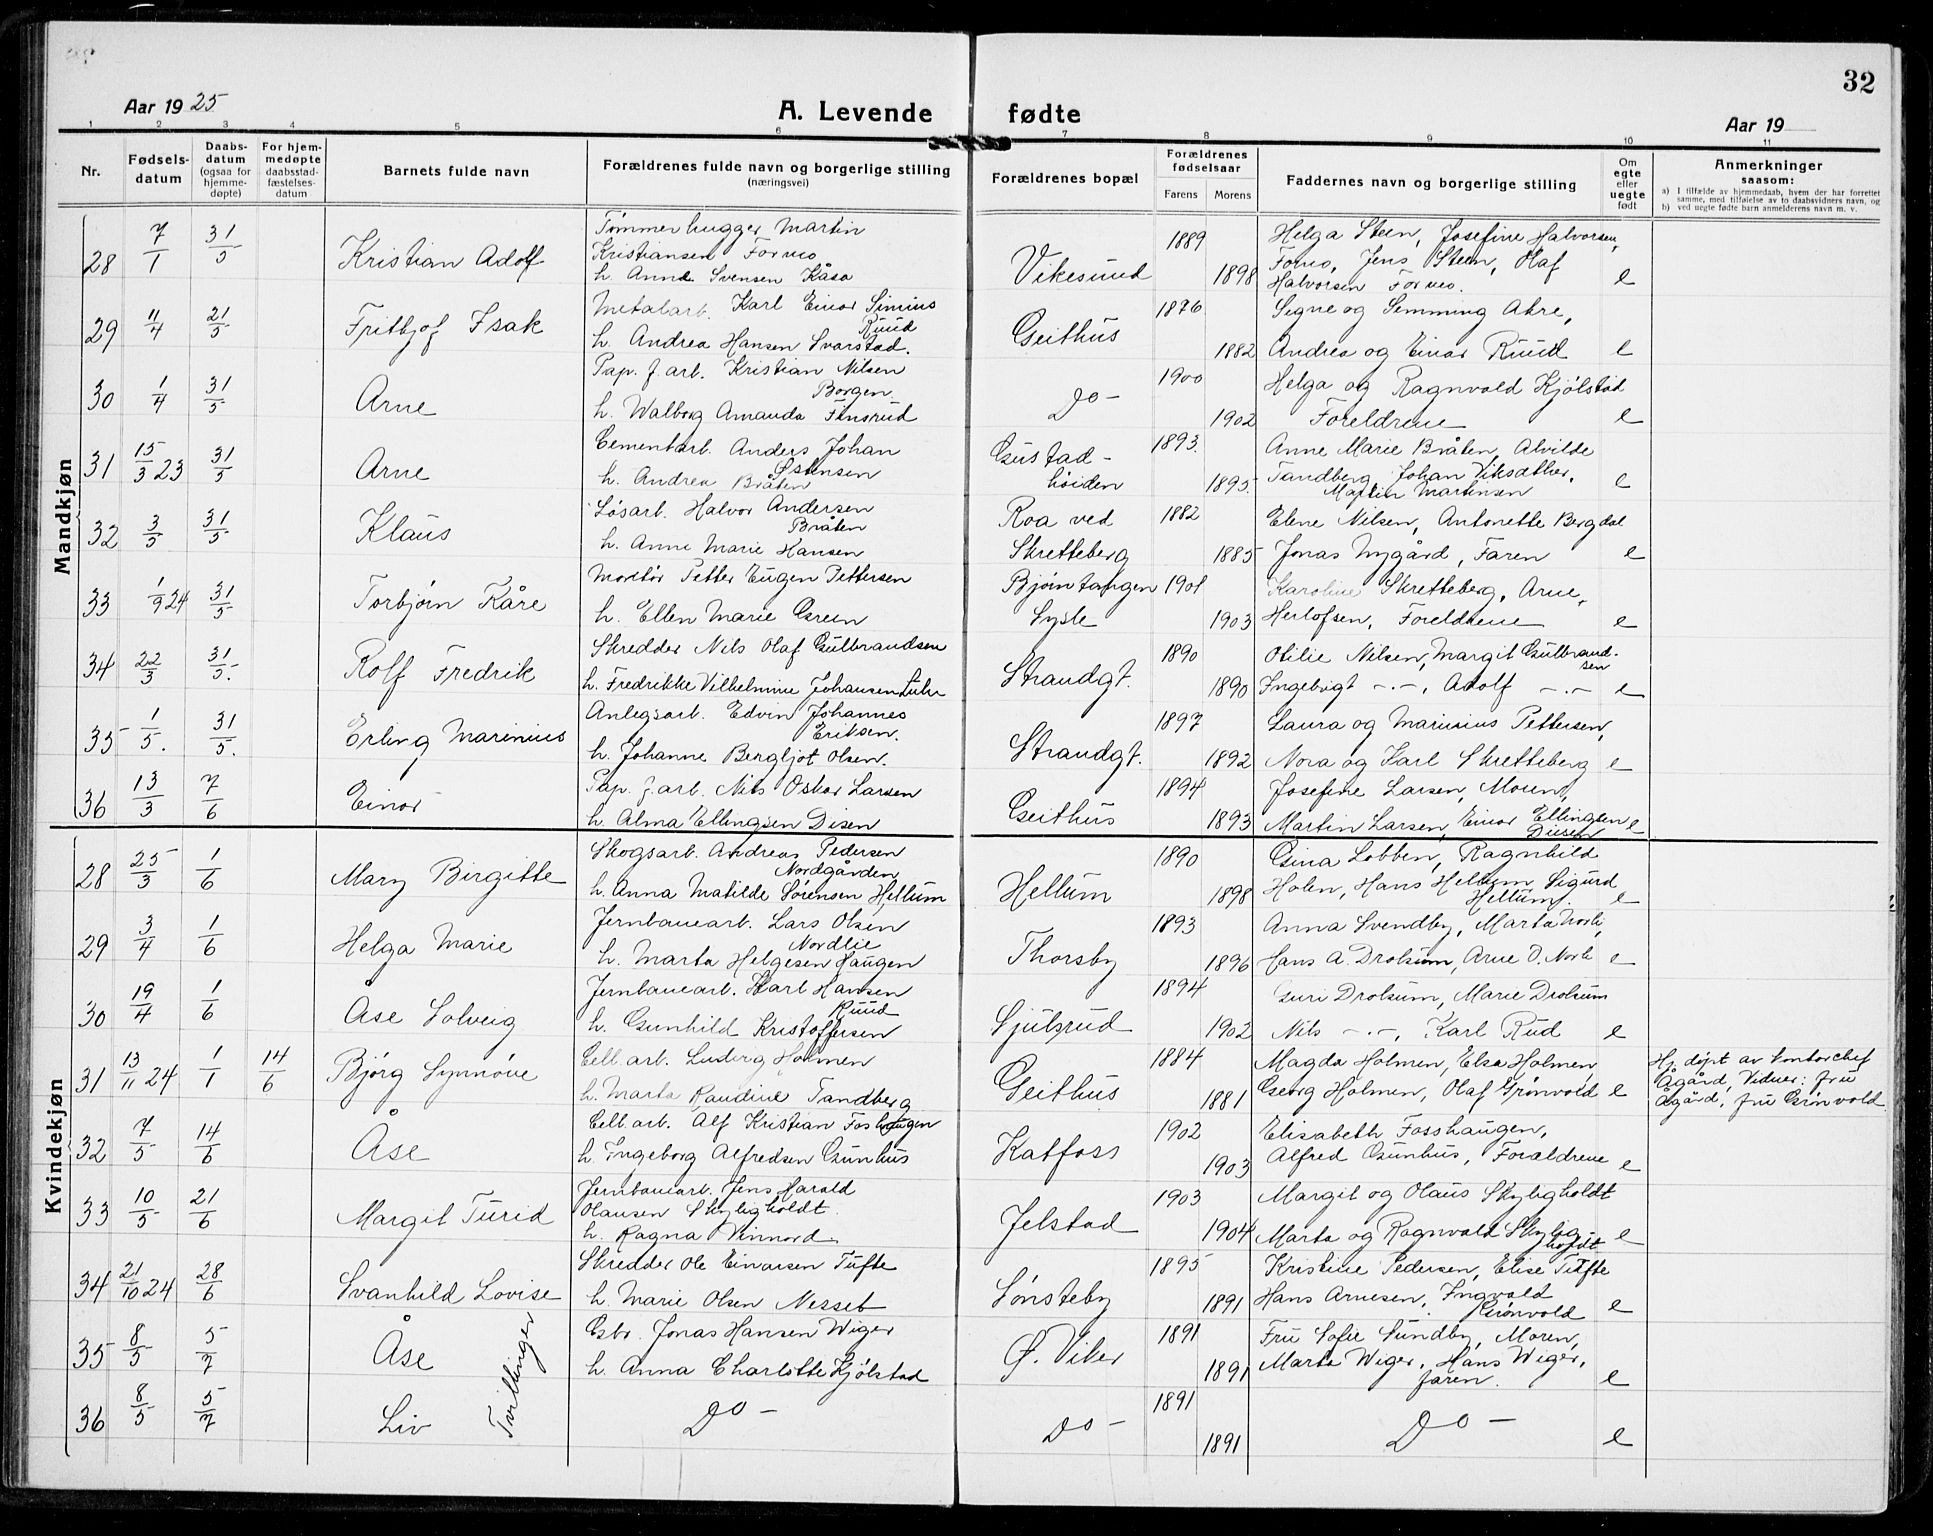 32
Aar 1925
A. Levende fødte
Aar 19
1 2 3 4 5 6 7 8 9 10 11
Nr.
Fødselsdatum
Daabsdatum (ogsaa for hjemmedøpte)
For hjemmedøpte daabsstadfæstelsesdatum
Barnets fulde navn
Forældrenes fulde navn og borgerlige stilling (næringsvei)
Forældrenes bopæl
Forældrenes fødselsaar
Farens Morens
Faddernes navn og borgerlige stilling
Om egte eller uegte født
Anmerkninger saasom:
a) I tilfælde av hjemmedaab, hvem der har forrettet samme, med tilføielse av to daabsvidners navn, og
b) ved uegte fødte barn anmelderens navn m. v.
Mandkjøn
28 7/1 31/5 Kristian Adolf
Tømmerhugger Martin
Kristiansen Formo
h. Anne Svensen Kåsa
Vikesund 1889 1898
Helga Steen, Josefine Halvorsen,
Formo, Jens Steen, Olaf
Halvorsen Formo. e
29 11/4 21/5 Fritbjof Isak
Metalarb. Karl Einar Simius
Ruud
h. Andrea Hansen Svarstad.
Geithus 1876 1882
Signe og Semming Akre,
Andrea og Einar Ruud e
30 1/4 31/5 Arne
Pap. f. arb. Kristian Nilsen
Borgen.
h. Walborg Amanda Finsrud
Do - 1900 1902
Helga og Ragnvald Kjølstad
Foreldrene e
31 15/3 23 31/5 Arne
Cementarb. Anders Johan
Stensen
h. Andrea Bråten
Gustadhöiden 1893. 1895.
Anne Marie Bråten, Alvilde
Tandberg, Johan Viksæther,
Martin Martinsen e
32 3/5 31/5 Klaus
Løsarb. Halvor Andersen
Bråten
h. Anne Marie Hansen
Roa ved
Skretteberg 1882 1885
Elene Nilsen, Antonette Bergdal
Jonas Nygård, Faren e
33 1/9 24 31/5 Torbjørn Kåre
Montør Petter Eugen Pettersen
h. Ellen Marie Green
Bjørntangen
Sysle 1901 1903
Karoline Skretteberg, Arne,
Herlofsen, Foreldrene e
34 22/3 31/5. Rolf Fredrik
Skredder Nils Olaf Gulbrandsen
h. Fredrikke Vilhelmine Johansen Luhr
Strandgt. 1890 1890
Otilie Nilsen, Margit Gulbrandsen
Ingebrigt -.-, Adolf -.- e
35 1/5. 31/5. Erling Marinius
Anlegsarb. Edvin Johannes
Eriksen.
h. Johanne Bergljot Olsen.
Strandgt. 1897 1892
Laura og Marinius Pettersen,
Nora og Karl Skretteberg e
36 13/3 7/6 Einar
Pap. f. arb. Nils Oskar Larsen
h. Alma Ellingsen Disen
Geithus 1894 1893
Josefine Larsen, Moren,
Martin Larsen, Einar Ellingsen
Disen e
Kvindekjøn
28 25/3 1/6 Mary Birgitte
Skogsarb. Andreas Pedersen
Nordgården
h. Anna Matilde Sørensen Hellum
Hellum 1890 1898
Gina Lobben, Ragnhild
Holen, Hans Hellum, Sigurd
Hellum. e
29 3/4 1/6 Helga Marie
Jernbanearb. Lars Olsen
Nordlie
h. Marta Helgesen Haugen
Thorsby 1893 1896
Anna Svendby, Marta Norli,
Hans A. Drolsum, Arne O. Norli e
30 19/4 1/6 Åse Solveig
Jernbanearb. Karl Hansen
Ruud
h. Gunhild Kristoffersen
Sjulsrud 1894 1902
Guri Drolsum, Marie Drolsum
Nils -.-, Karl Rud e
31 13/11 24 1/1 14/6 Bjørg Synnöve
Cell. arb. Ludvig Holmen
h. Marta Randine Tandberg
Geithus 1884 1881
Magda Holmen, Elsa Holmen,
Georg Holmen, Olaf Grønvold e
Hj. døpt av kontorchef
Ågård, Vidner: fru
Ågård, fru Grönvold
32 7/5 14/6 Åse
Cell. arb. Alf Kristian Foshaugen
h. Ingeborg Alfredsen Gunhus
Katfoss 1902 1903
Elisabeth Fosshaugen,
Alfred Gunhus, Forældrene e
33 10/5 21/6 Margit Turid
Jernbanearb. Jens Harald
Olausen Skyligholdt.
h. Ragna Vinnord
Jelstad 1903 1904
Margit og Olaus Skyligholdt
Marta og Ragnvald Skyligholdt e
34 21/10 24 28/6 Svanhild Lovise
Skredder Ole Einarsen Tufte
h. Marie Olsen Nesset
Sønsteby 1895 1891
Kristine Pedersen, Elise Tufte
Hans Arnesen, Ingvald
Grønvold e
35 8/5 5/7 Åse
Tvillinger
Gsbr. Jonas Hansen Wiger
h. Anna Charlotte Kjølstad
Ø. Viker 1891 1891
Fru Sofie Sundby, Moren,
Marta Wiger, Hans Wiger,
faren. e
36 8/5 5/7 Liv
Do - Do - 1891 1891 Do - e